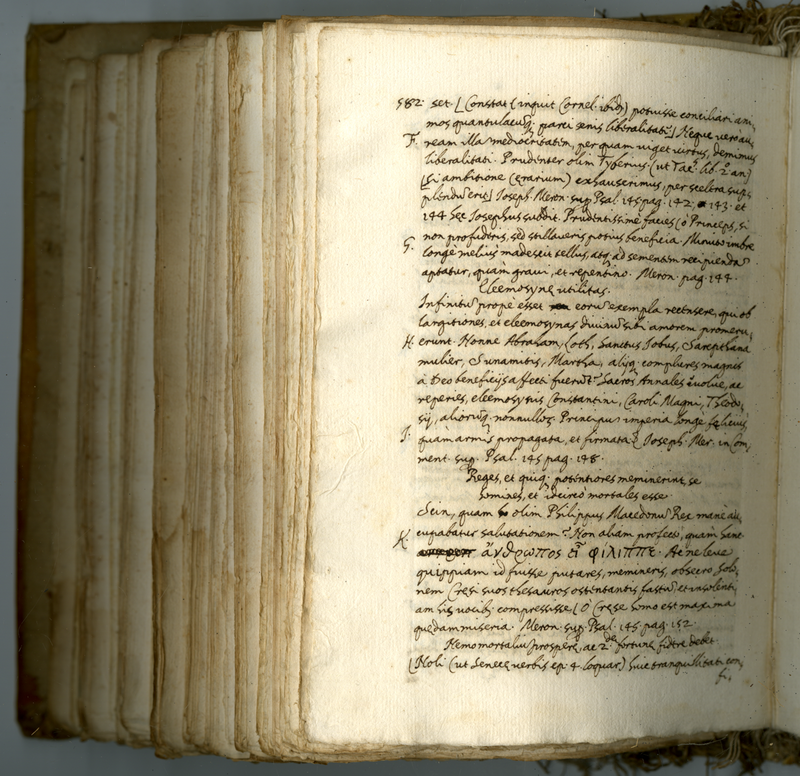 582. set. [Constat (inquit Cornel. ibid) potuisse conciliari ani,
mos quantulacuq; parci senis liberalitate.] Neque vero au,
F. ream illa mediocritatem, per quam viget virtus, demimus
liberalitati. Prudenter olim Tyberius (ut Tac. lib. 2. an)
[Si ambitione (erarium) exhauserimus, per scelera sup,
plendu erit] Joseph. Meron. sup Psal. 145 pag. 142. 143. et
144 hec Josephus subdit. Prudentissime facies (o Princeps, si
non profuderis, sed stillaveris potius beneficia. Minuto imbre
G. longè meliùs madescit tellus, atq; ad sementem recipiendã
aptatur, quam gravi, et repentino. Meron. pag. 144.
Eleemosyne utilitas.
Infinitu propè esset eoru exempla recensere, qui ob
largitiones, et eleemosynas divinu sibi amorem promeru,
H. erunt. Nonne Abraham, Loth, Sanctus Jobus, Sarepthana
mulier, Sunamitis, Martha, alijq; complures magnis
à Deo beneficijs affecti fuerut? Sacros Annales evolue, ac
reperies, eleemosynis Constantini, Caroli Magni, Theodo,
sij, aliorūq; nonnullor. Principu imperia longe feliciùs
I. quam armis propagata, et firmata? Joseph. Mer. in Com,
ment. sup. Psal. 145 pag. 148.
Reges, et quiq; potentiores meminerint, se
homines, et idcircò mortales esse.
Scin, quam olim Philippus Macedonu Rex manè au,
K. cupabatur salutationem? Non aliam profecto, quàm hanc
ἄνθρωπος εἶ φιλιππε. Ac ne leve
quippiam id fuisse putares, memineris, obsecro, Solo,
nem Cresi suos thesauros ostentantis fastu, et insolenti,
am his vocib; compressisse [O Crese homo est maxima
quedam miseria. Meron. sup. Psal. 145 pag. 152.
Nemo mortaliu prospere, ac 2.de fortune fidere debet
[Noli (ut Senece verbis ep. 4. loquar) huic tranquillitati con,
fi,